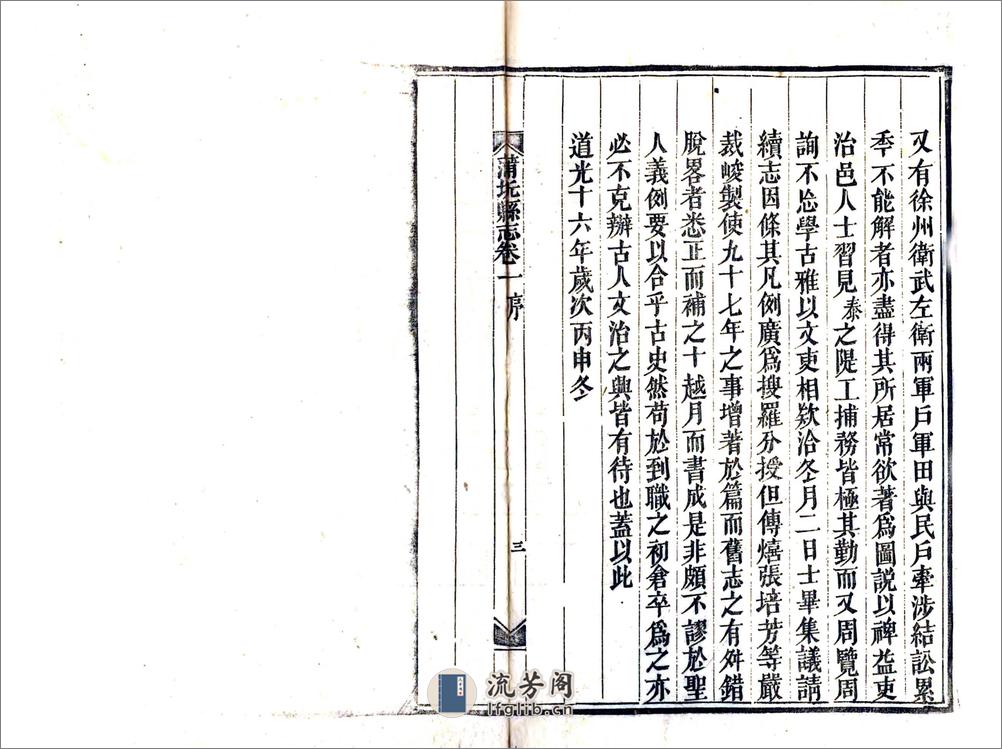 又有徐州衛武左衛兩軍戶軍田與民戶牽涉結訟累
年不能解者亦盡得其所居常欲著爲圖説以裨益吏
治邑人士習見泰之隄工捕務皆極其勤而又周覽周
詢不怠學古雅以文吏相欵洽冬月二日士畢集議請
續志因條其凡例廣爲搜羅分授但傳熺張培芳等嚴
裁峻製使九十七年之事增著於篇而舊志之有舛錯
脫畧者悉正而補之十越月而書成是非頗不謬於聖
人義例要以合乎古史然苟於到職之初倉卒爲之亦
必不克辦古人文治之興皆有待也蓋以此
道光十六年歲次丙申冬
蒲圻縣志卷一 序
三
流芳阁
lfglib.cn